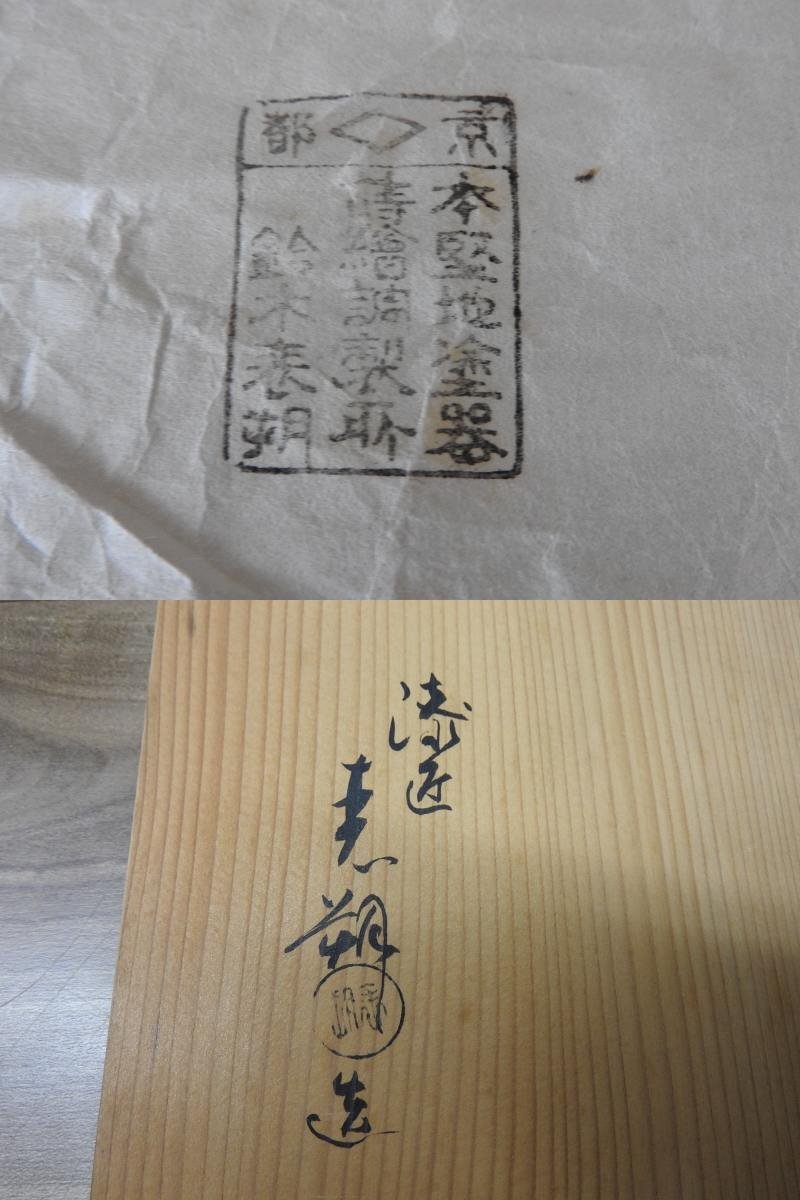 京都
本堅地塗器
蒔繪調製所
鈴木表朔
漆匠
表朔
造